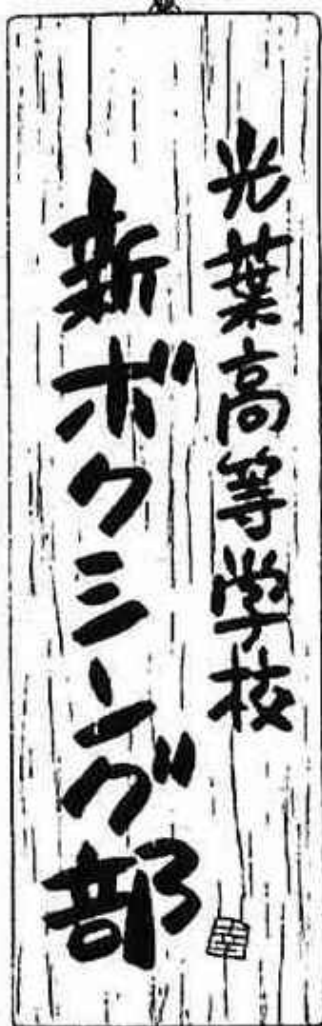 光葉高等学校
新ボクミング部